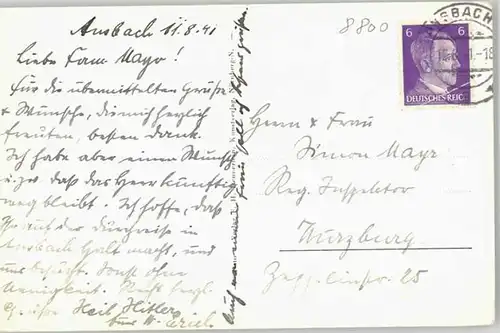 Ansbach 11.8.41
Liebe Frau Mayr!
Für die übermittelten Grüße
& Wünsche, die mich herzlich
freuten, besten Dank.
Ich habe aber einen Wunsch
u. zw. daß das Herr künftig
weg bleibt. Ich hoffe, daß
Sie auf der Durchreise in
Ansbach Halt macht, und
uns besucht. Sonst ohne
Neuigkeit. Recht herzl.
Grüße Heil Hitler
Auch von meiner Frau soll ich
8800
ANSBACH
6 6
DEUTSCHES REICH
Herrn & Frau
Simon Mayr
Reg. Inspektor
Würzburg
Zeppelinstr. 25